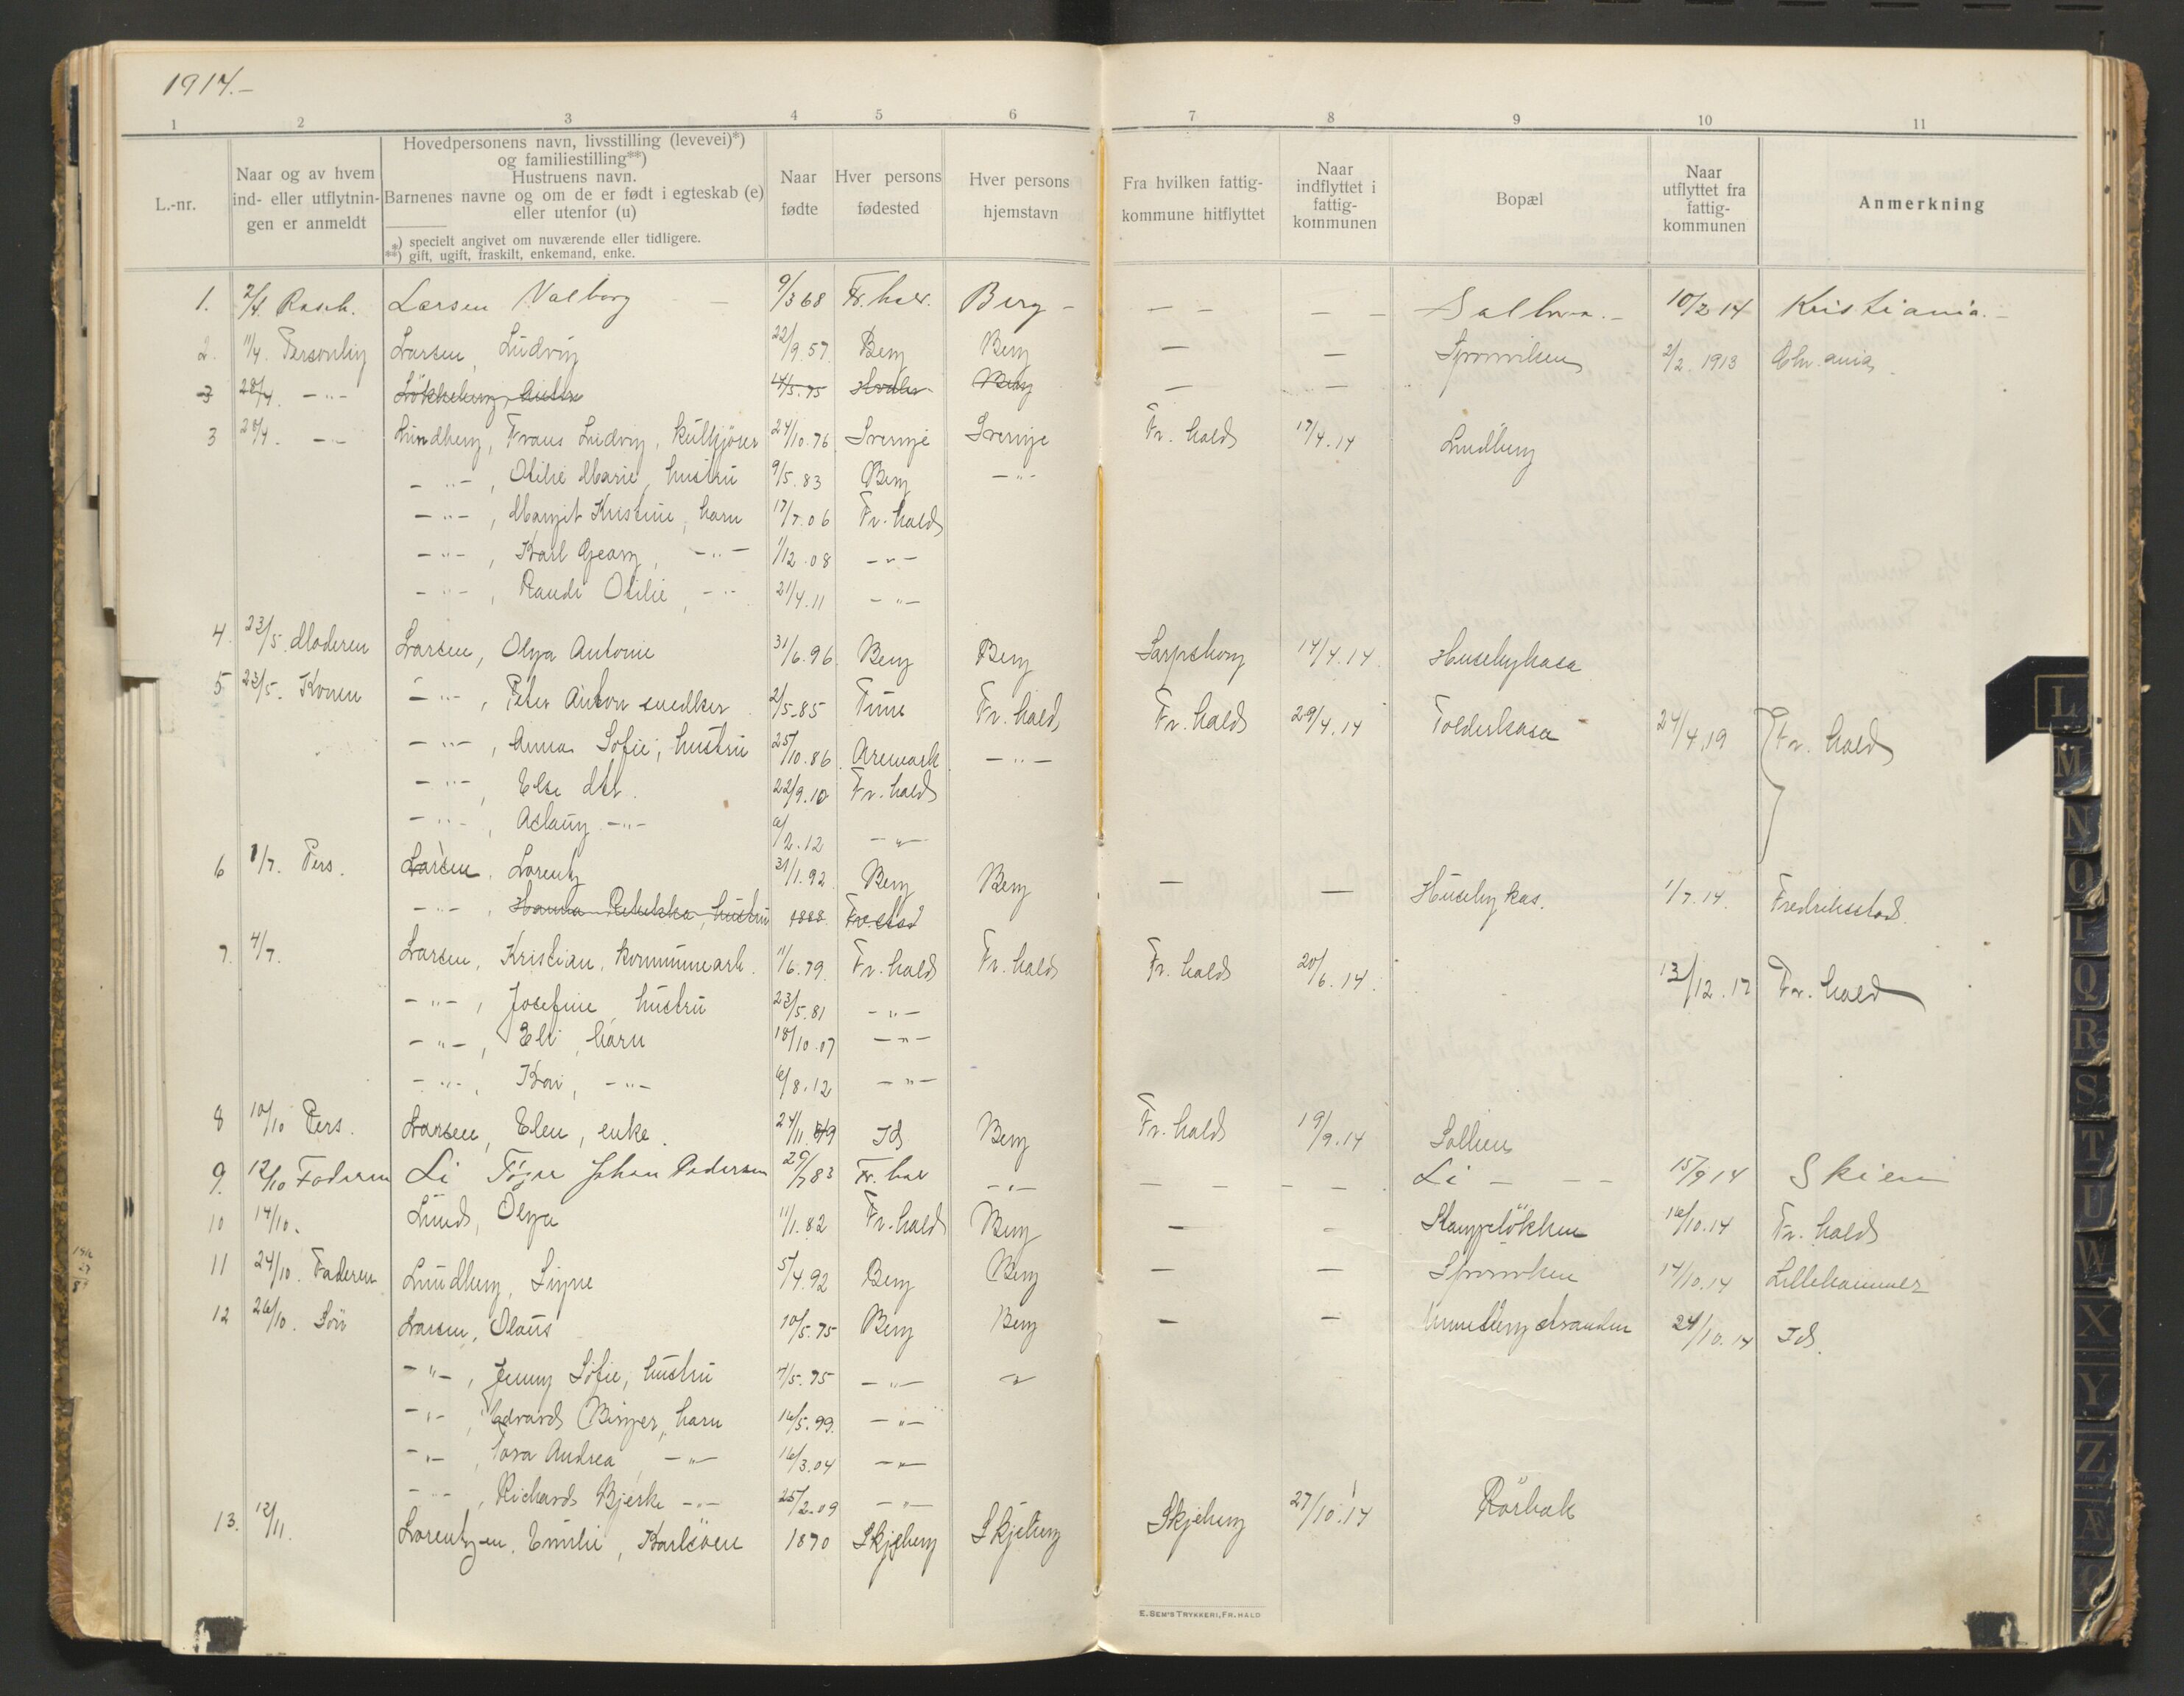 1914.-
1 2 3 4 5 6 7 8 9 10 11
L.-nr.
Naar og av hvem
ind- eller utflytnin-
gen er anmeldt
Hovedpersonens navn, livsstilling (levevei)*)
og familiestilling**)
Hustruens navn.
Barnenes navne og om de er født i egteskab (e)
eller utenfor (u)
*) specielt angivet om nuværende eller tidligere.
**) gift, ugift, fraskilt, enkemand, enke.
Naar
fødte
Hver persons
fødested
Hver persons
hjemstavn
Fra hvilken fattig-
kommune hitflyttet
Naar
indflyttet i
fattig-
kommunen
Bopæl
Naar
utflyttet fra
fattig-
kommunen
Anmerkning
1. 2/4. Rasch. Larsen Valborg - 9/3 68 Fr. hald. Berg - - - - - 10/2 14 Kristiania.-
2. 11/4. Personlig Larsen, Ludvig 22/9.57. Berg Berg - - 2/2.1913 Chr.ania.
3 28/4. -"- 14/5.75 Hvaler Berg - -
3 28/4. -"- Lundberg, Frans Ludvig, kulkjører 24/10.76 Sverige Sverige Fr. hald 17/4.14 Lundberg
-"-, Otilie Marie, hustru 9/5.83 Berg -"-
-"-, Margit Kristine, barn 17/7.06 Fr. hald
-"-, Karl Georg, -"- 1/12.08 -"-
-"-, Randi Otilie, -"- 21/4.11 -"-
4. 23/5. Moderen Larsen, Olga Antonie 31/6.96 Berg Berg Sarpsborg 14/4.14. Husebykasa
5. 23/5. Konen -"-, Peter Anton snedker 2/5.85 Tune Fr. hald Fr. hald 29/4.14 Tolderkasa 24/4.19 Fr. hald
-"-, Anna Sofie, hustru 25/10.86. Aremark -"-
-"-, Else dtr. 22/9.10 Fr. hald
-"-, Aslaug -"- 6/2.12 -"-
6 1/7. Pers. Larsen, Lorentz 31/1.92 Berg Berg - - Husebykas. 1/7.14. Fredriksstad.
-"-, Hanna Rebekka, hustru 1888 Fr.stad
7. 4/7. Larsen, Kristian, kommunearb. 11/6.79. Fr. hald Fr. hald Fr. hald 20/6.14. 13/12.17 Fr. hald
-"-, Josefine hustru 23/5.81 -"-
-"-, Eli, barn 18/10.07 -"-
-"-, Kari, -"- 6/8.12 -"-
8 10/10 Pers. Larsen, Elen, enke. 24/11. Id Berg Fr. hald 19/9.14 Sollien
9. 12/10 Faderen Li Johan Pedersen 29/7 83 Fr. hal -"- - - - - Li - - - 15/9 14 Skien
10 14/10. Lund, Olga 11/1.82 Fr. hald Berg - - Stangeløkken 16/10.14 Fr. hald
11 24/10. Faderen Lundberg, Signe 5/4.92 Berg Berg - - 17/10.14 Lillehammer
12 26/10. Larsen, Olaus 10/5.75 Berg Berg - - 24/10.14 Id.
-"-, Jenny Sofie, hustru 7/5.75 -"- "
-"-, Edvard Birger, barn 16/5.99. -"-
-"-, Tora Andrea, -"- 16/3.04 -"-
-"-, Richard Bjerke -"- 25/2.09 -"-
13. 12/11. Lorentzen, Emilie, 1870 Skjeberg Skjeberg Skjeberg 27/10.14 Rørbæk
E. SEM'S TRYKKERI, FR.HALD
L
M
N
O
P
Q
R
S
T
U
W
X
Y
Z
Æ
Ø